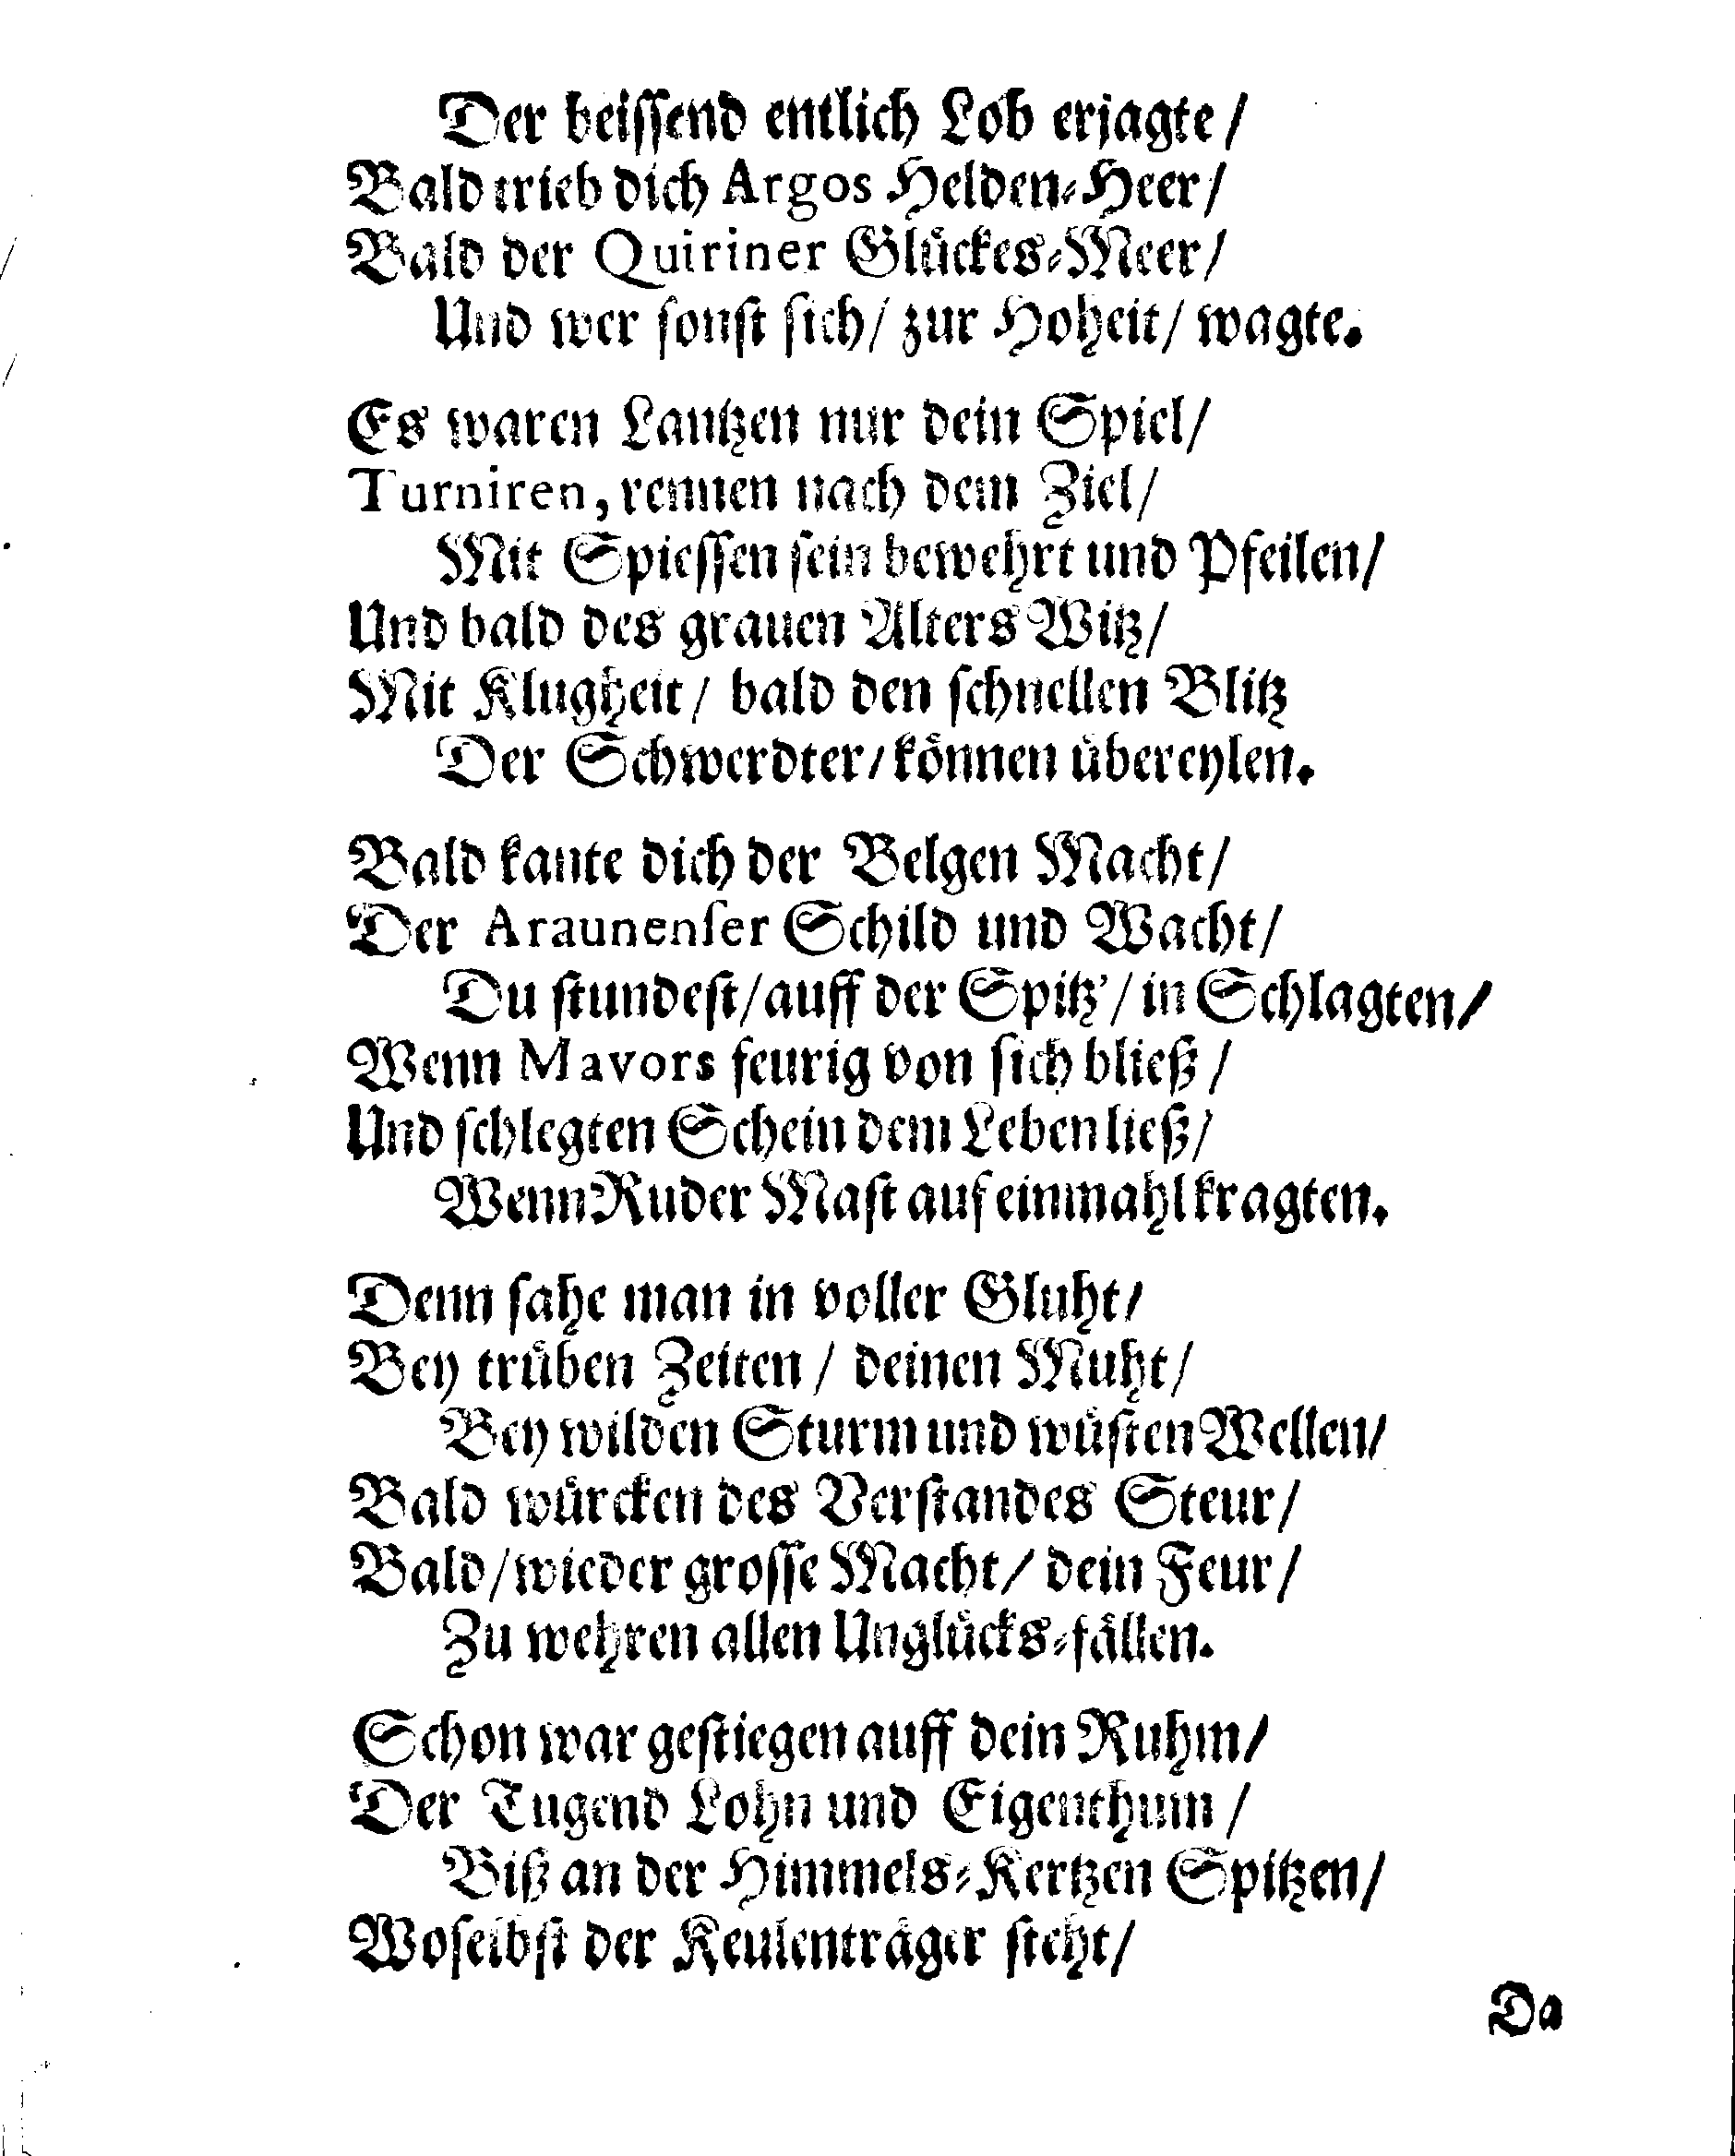 Der beissend entlich Lob erjagte /
Bald trieb dich Argos Helden-Heer /
Bald der Quiriner Glückes-Meer /
Und wer sonst sich / zur Hoheit / wagte.
Es waren Lantzen nur dein Spiel /
Turniren, rennen nach dem Ziel /
Mit Spiessen sein bewehrt und Pfeilen /
Und bald des grauen Alters Witz /
Mit Klugheit / bald den schnellen Blitz
Der Schwerdter / können übereylen.
Bald kante dich der Belgen Macht /
Der Araunenser Schild und Wacht /
Du stundest / auff der Spitz' / in Schlagten /
Wenn Mavors feurig von sich bließ /
Und schlegten Schein dem Leben ließ /
Wenn Ruder Mast auf einmahl kragten.
Denn sahe man in voller Gluht /
Bey trüben Zeiten / deinen Muht /
Bey wilden Sturm und wüsten Wellen /
Bald würcken des Verstandes Steur /
Bald / wieder grosse Macht / dein Feur /
Zu wehren allen Unglücks-fällen.
Schon war gestiegen auff dein Ruhm /
Der Tugend Lohn und Eigenthum /
Biß an der Himmels-Kertzen Spitzen /
Woselbst der Keulenträger steht /
Da